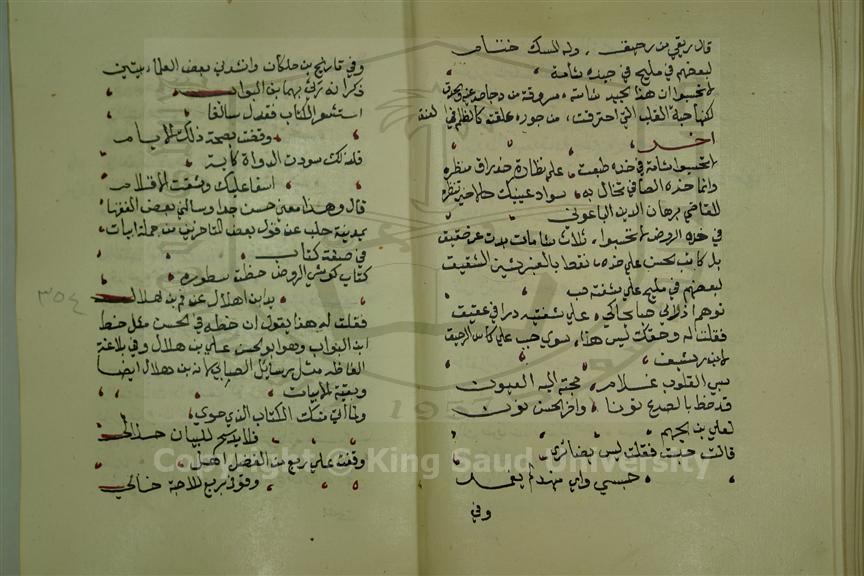 قال ريقي من رحيق، وله المسك ختام
لبعضهم في مليح في جيده شامة
لا تحسبوا ان هذا بجيد شامته مسروقة من دجا صدغيه وحدت
لكنها حبة القلب التي احترقت، من جوره علقت كالظلم في العنق
اخر
لا تحسبوا شامة في خده طبعت، على نظارة خد راق منظره
وانما خده الصافي تخال به، سواد عينيك خالا حين تنظره
للقاضي برهان الدين الباعوني
في خده الروض لا تحسبوا، ثلاث شامات بدت عن حقيق
بل كاتب الحسن على خده، نقطا بالعنبر شين الشقيق
لبعضهم في مليح على شفته حب
توهم اذ لالي حباحاكي، على شفتيه درا في عقيق
فقلنا له وحقك ليس هذا، سوى حبب على كاس الرحيق
لابن رشيق
يسبي القلوب غلام، تحتم اليه العيون
قد خط بالصدغ نونا، واخر الحسن نون
لعلي بن الجهم
قالت حبست فقلت ليس بضائري
حبسي واي مهند لا يغمد
وفي
وفي تاريخ بن خلكان وانشدني بعض العلماء بيتين
ذكر انه رثي بهما بن البواب
استشعر الكتاب فقدك سالفا
وقضت بصحة ذلك الايام
فلذلك سودت الدواة كابة
اسفا عليك وشقت الاقلام
قال وهذا معنى حسن جدا وسالني بعض الفقهاء
بمدينة حلب عن قول بعض المتاخرين من جملة ابيات
في صفة كتاب
كتاب كوشي الروض خطت سطوره
يد ابن هلال عن فم بن هلال
فقلت له هذا يقول ان خطه في الحسن مثل خط
ابن البواب وهو ابو الحسن علي بن هلال وفي بلاغة
الفاظه مثل رسايل الصابي لانه بن هلال ايضا
وبقية الابيات
ولما اتى منك الكتاب الذي حوى
قلايد سحر للبيان حلال
وقفت على ربع من الفضل اهل
وقوفي بربع للاحة خالي
٣٥٤
Copyright © King Saud University
1957